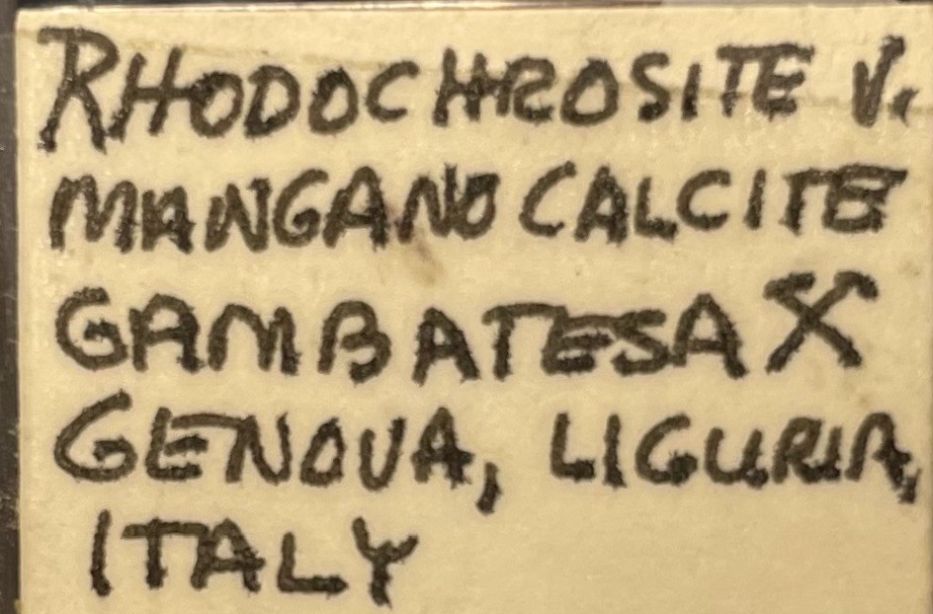 RHODOCHROSITE V.
MANGANO CALCITE
GAMBATESA ⚒
GENOVA, LIGURIA,
ITALY